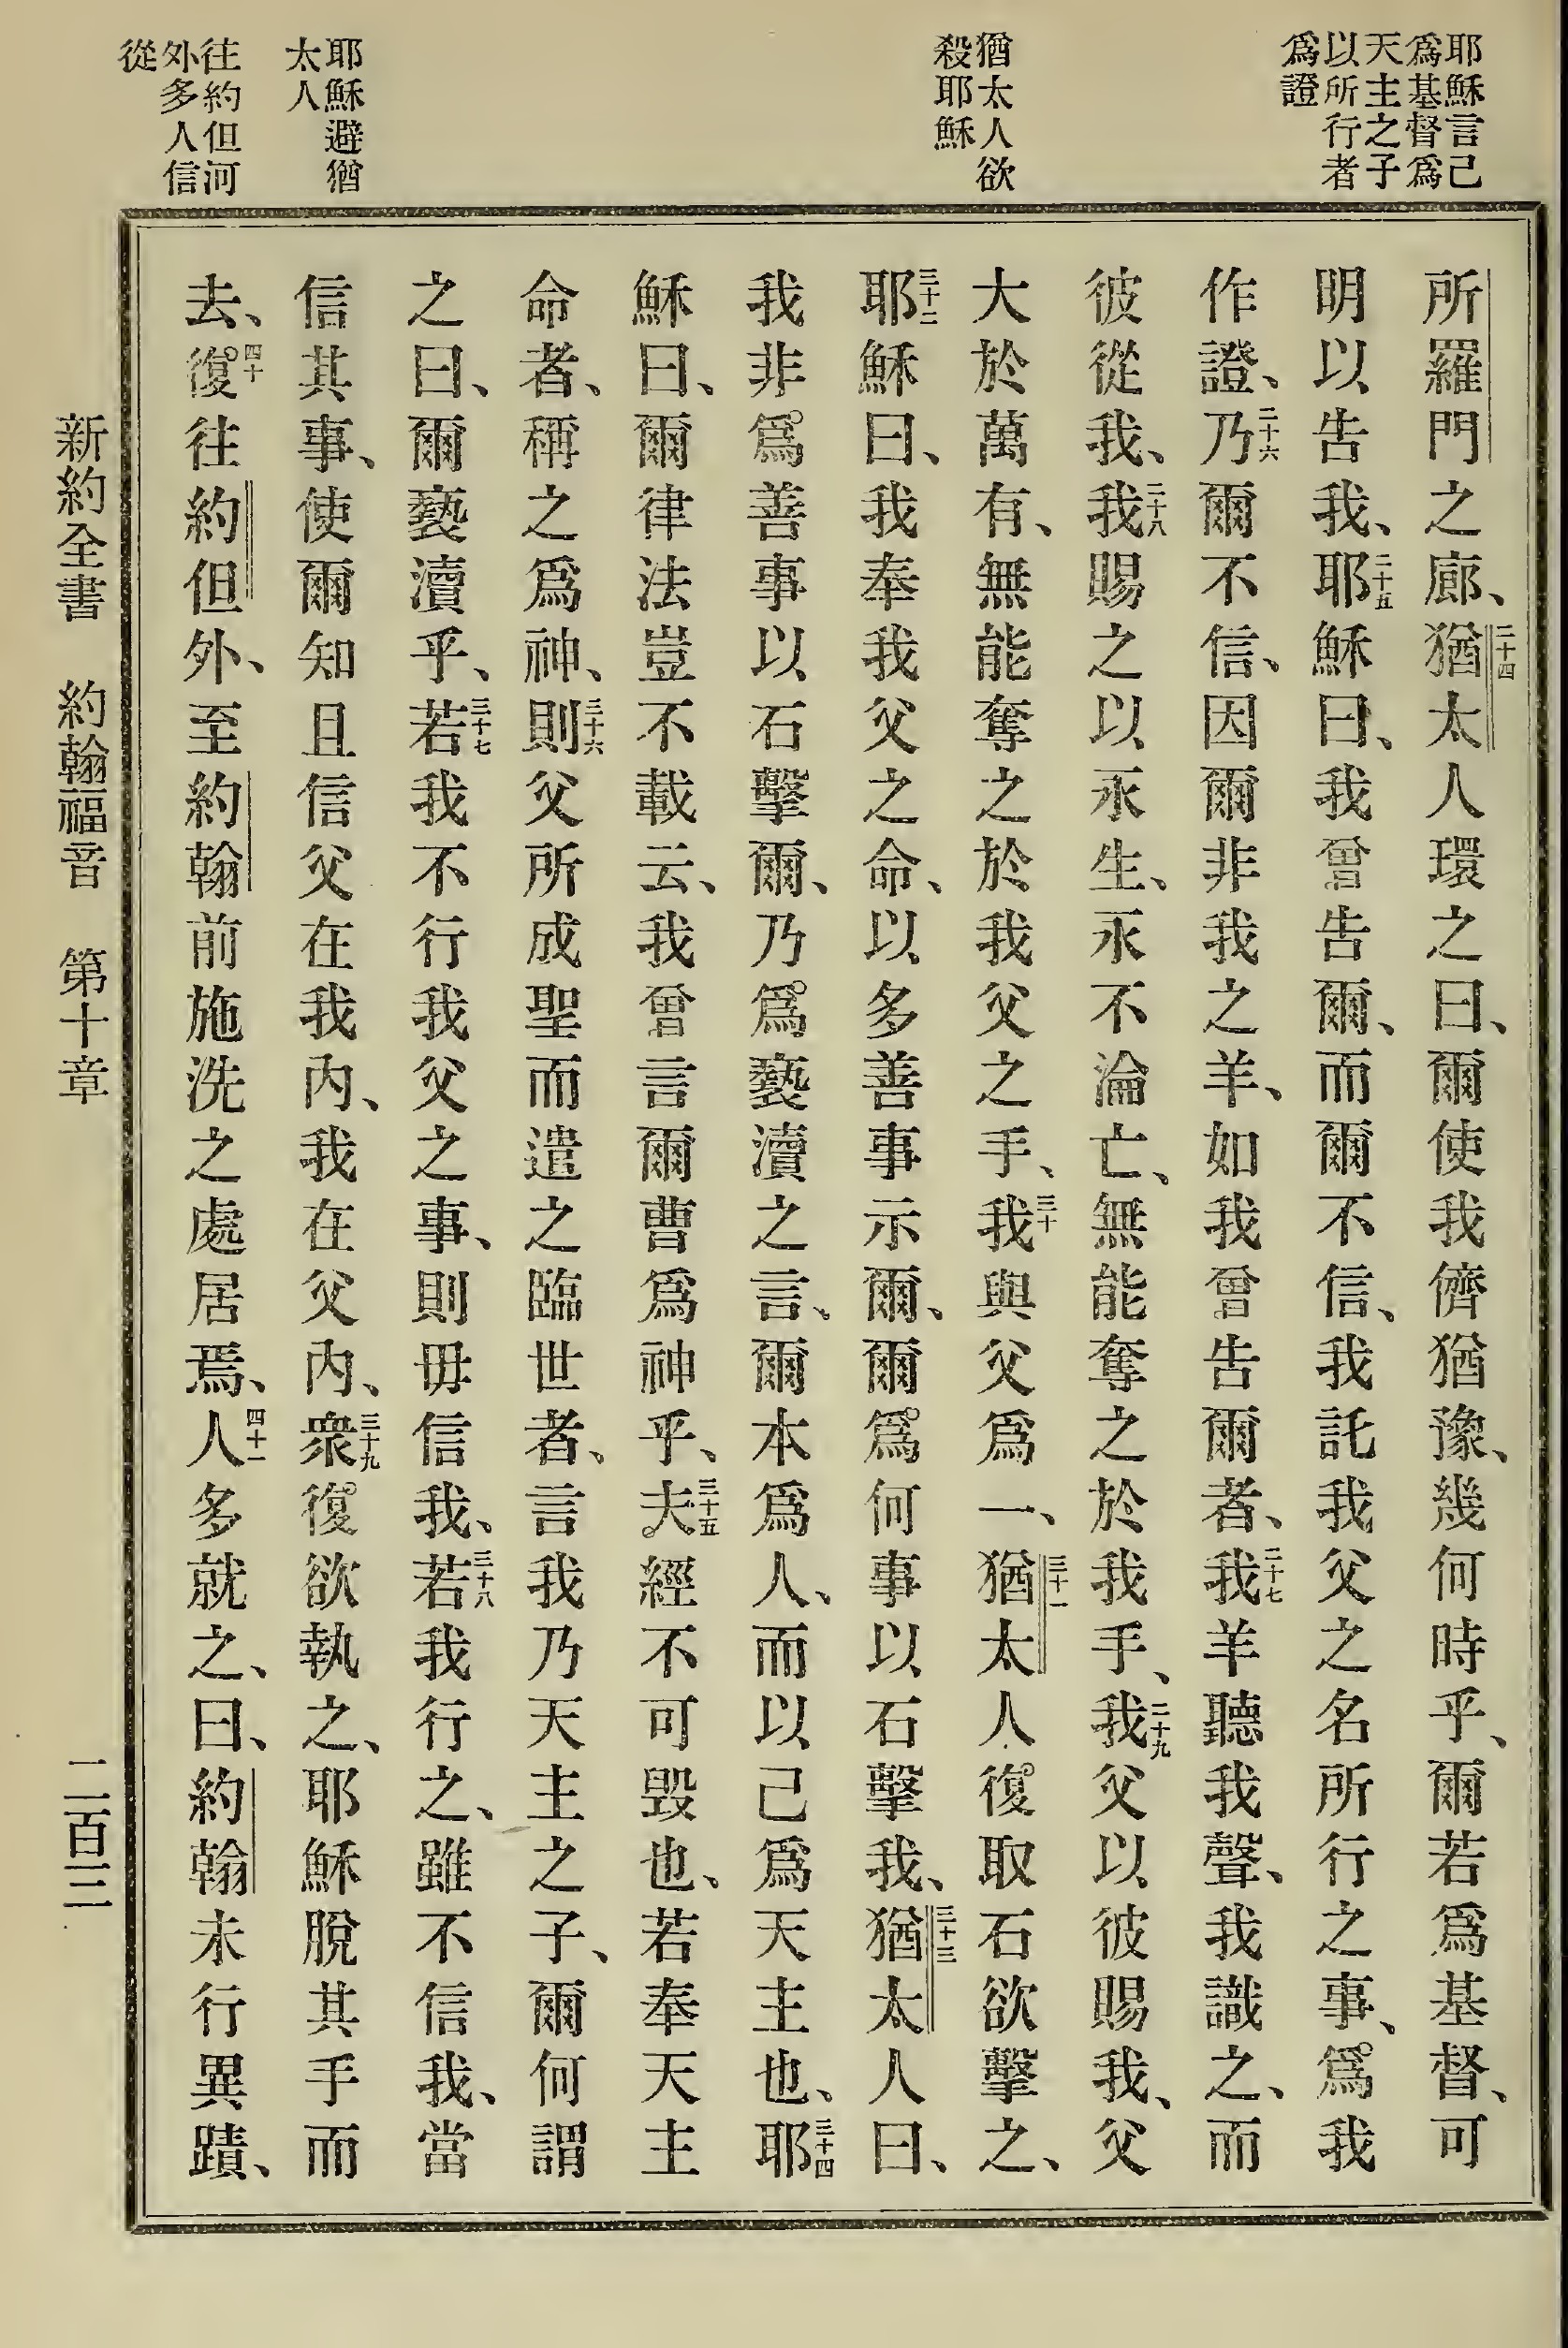 耶穌言己
爲基督爲
天主之子
以所行者
爲證
猶太人欲
殺耶穌
耶穌避猶
太人
往約但河
外多人信
從
所羅門之廊、二十四猶太人環之曰、爾使我儕猶豫、幾何時乎、爾若爲基督、可
明以告我、二十五耶穌曰、我曾告爾、而爾不信、我託我父之名所行之事、爲我
作證、二十六乃爾不信、因爾非我之羊、如我曾告爾者、二十七我羊聽我聲、我識之、而
彼從我、二十八我賜之以永生、永不淪亡、無能奪之於我手、二十九我父以彼賜我、父
大於萬有、無能奪之於我父之手、三十我與父爲一、三十一猶太人復取石欲擊之、
三十二耶穌曰、我奉我父之命、以多善事示爾、爾爲何事以石擊我、三十三猶太人曰、
我非爲善事以石擊爾、乃爲褻瀆之言、爾本爲人、而以己爲天主也、三十四耶
穌曰、爾律法豈不載云、我曾言爾曹爲神乎、三十五夫經不可毀也、若奉天主
命者、稱之爲神、三十六則父所成聖而遣之臨世者、言我乃天主之子、爾何謂
之曰、爾褻瀆乎、三十七若我不行我父之事、則毋信我、三十八若我行之、雖不信我、當
信其事、使爾知且信父在我內、我在父內、三十九衆復欲執之、耶穌脫其手而
去、四十復往約但外、至約翰前施洗之處居焉、四十一人多就之、曰、約翰未行異蹟、
新約全書 約翰福音 第十章 二百三